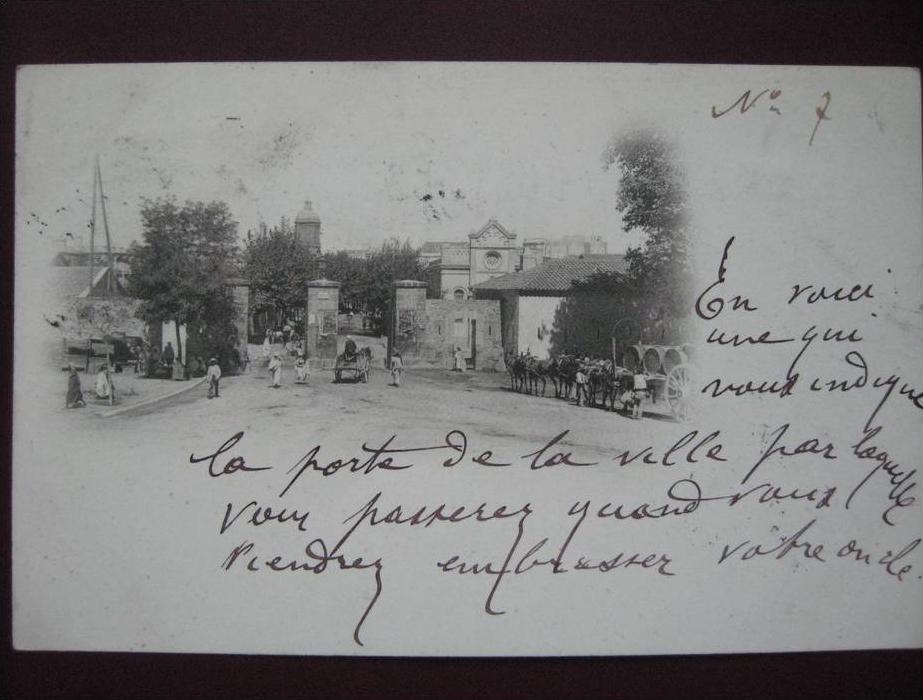 No 7
En voici
une qui
vous indique
la porte de la ville par laquelle
vous passerez quand vous
viendrez embrasser votre oncle.